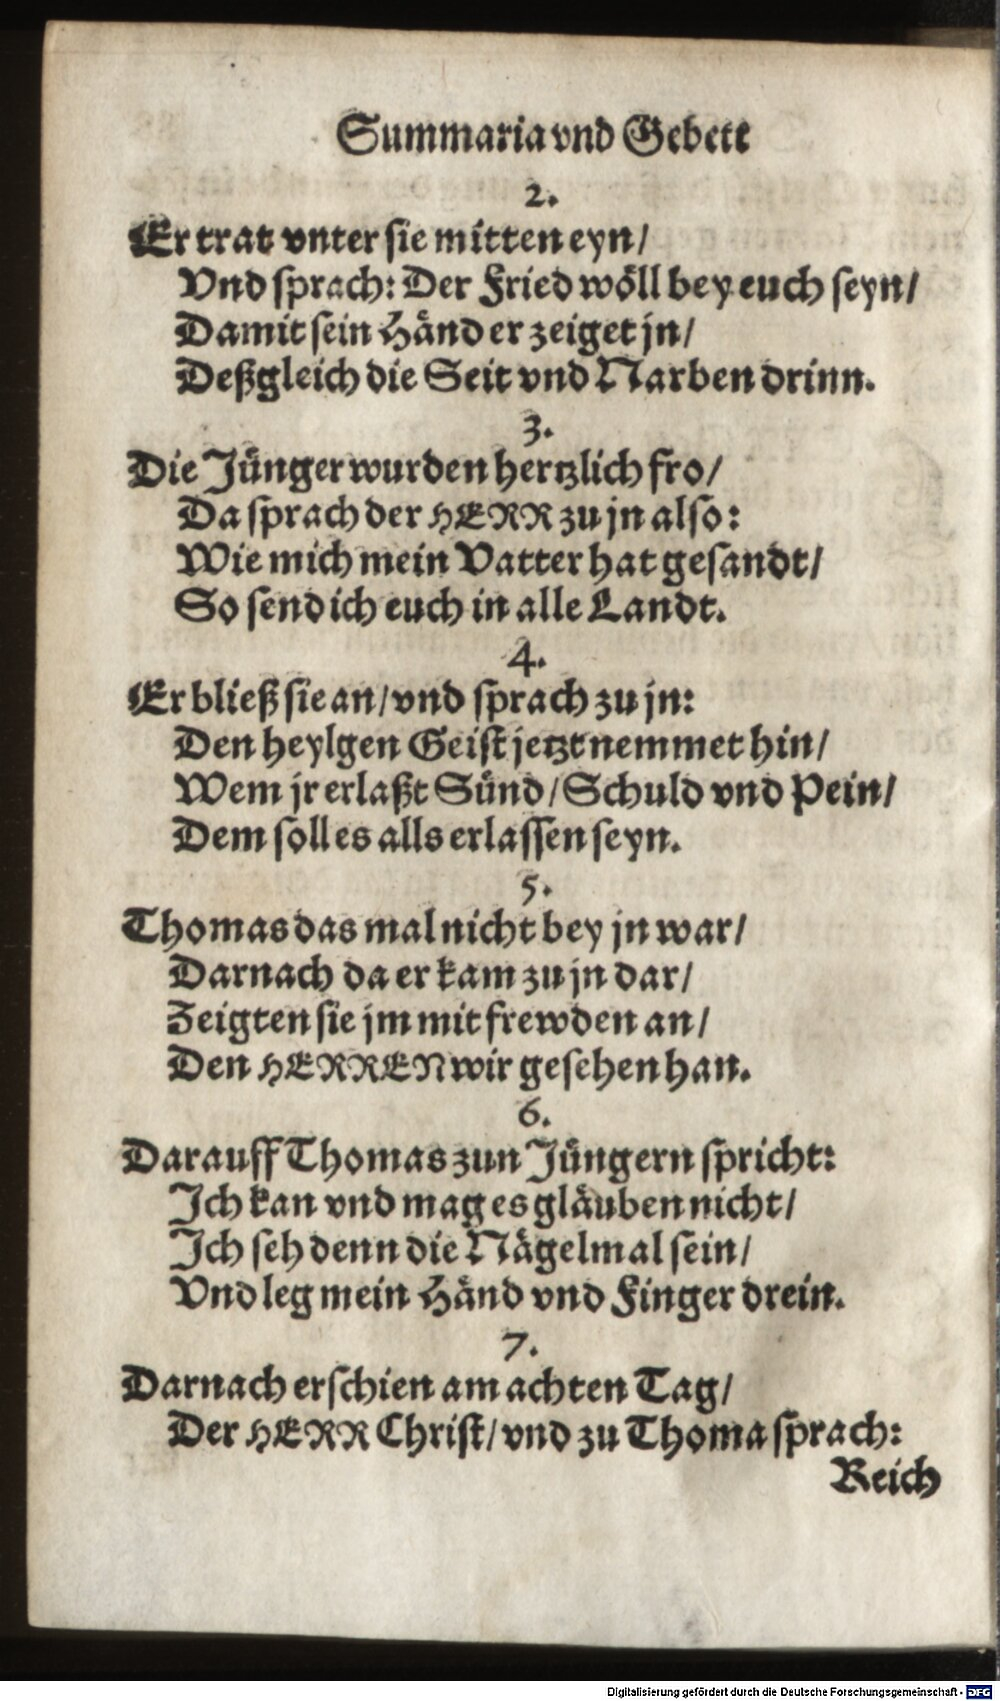 Summaria vnd Gebett
2.
Er trat vnter sie mitten eyn/
Vnd sprach: Der Fried wöll bey euch seyn/
Damit sein Händ er zeiget jn/
Deßgleich die Seit vnd Narben drinn.
3.
Die Jünger wurden hertzlich fro/
Da sprach der HERR zu jn also:
Wie mich mein Vatter hat gesandt/
So send ich euch in alle Landt.
4.
Er bließ sie an/ vnd sprach zu jn:
Den heylgen Geist jetzt nemmet hin/
Wem jr erlaßt Sünd/ Schuld vnd Pein/
Dem soll es alls erlassen seyn.
5.
Thomas das mal nicht bey jn war/
Darnach da er kam zu jn dar/
Zeigten sie jm mit frewden an/
Den HERREN wir gesehen han.
6.
Darauff Thomas zun Jüngern spricht:
Ich kan vnd mag es gläuben nicht/
Ich seh denn die Nägelmal sein/
Vnd leg mein Händ vnd Finger drein.
7.
Darnach erschien am achten Tag/
Der HERR Christ/ vnd zu Thoma sprach:
Reich
Digitalisierung gefördert durch die Deutsche Forschungsgemeinschaft - DFG